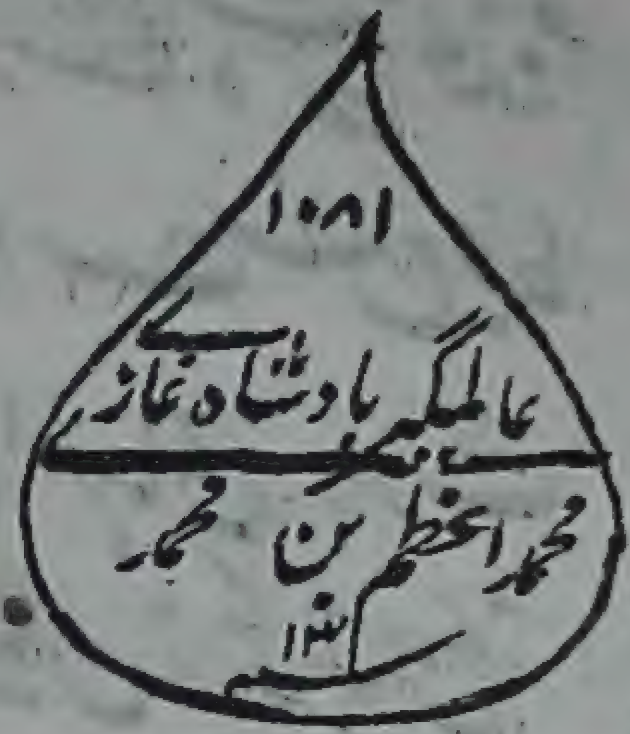 ۱۰۸۱
عالمگیر بادشاه غازی
محمد اعظم بن محمد
۱۳